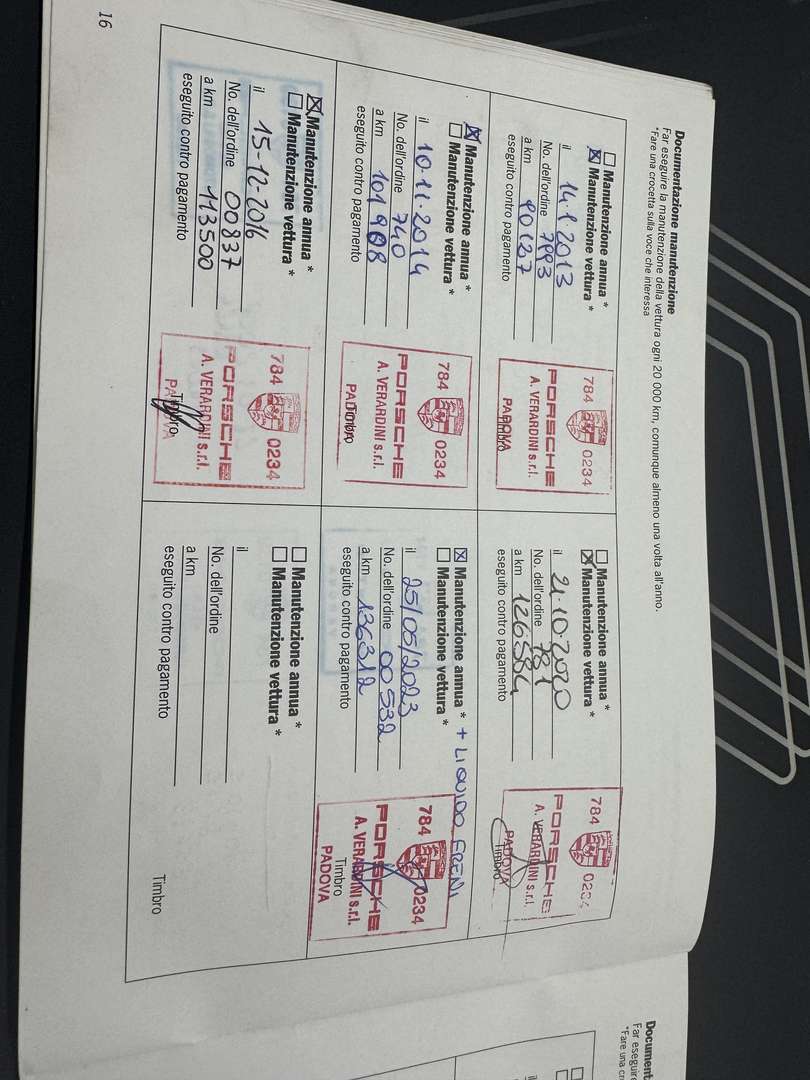 Documentazione manutenzione
Far eseguire la manutenzione della vettura ogni 20 000 km, comunque almeno una volta all'anno.
*Fare una crocetta sulla voce che interessa
Manutenzione annua *
Manutenzione vettura *
il 14.1.2013
No. dell'ordine 7993
a km 90127
eseguito contro pagamento
784 0234
PORSCHE
A. VERARDINI s.r.l.
PADOVA
Timbro
Manutenzione annua *
Manutenzione vettura *
il 21.10.2020
No. dell'ordine 781
a km 126584
eseguito contro pagamento
784 0234
PORSCHE
A. VERARDINI s.r.l.
PADOVA
Timbro
Manutenzione annua *
Manutenzione vettura *
il 10.11.2014
No. dell'ordine 740
a km 101908
eseguito contro pagamento
784 0234
PORSCHE
A. VERARDINI s.r.l.
PADOVA
Timbro
Manutenzione annua * + LIQUIDO FRENI
Manutenzione vettura *
il 25/05/2023
No. dell'ordine 00532
a km 136312
eseguito contro pagamento
784 0234
PORSCHE
A. VERARDINI s.r.l.
Timbro
PADOVA
Manutenzione annua *
Manutenzione vettura *
il 15-12-2016
No. dell'ordine 00837
a km 113500
eseguito contro pagamento
784 0234
PORSCHE
A. VERARDINI s.r.l.
Timbro
PADOVA
Manutenzione annua *
Manutenzione vettura *
il
No. dell'ordine
a km
eseguito contro pagamento
Timbro
16
Document
Far eseguire
*Fare una cr